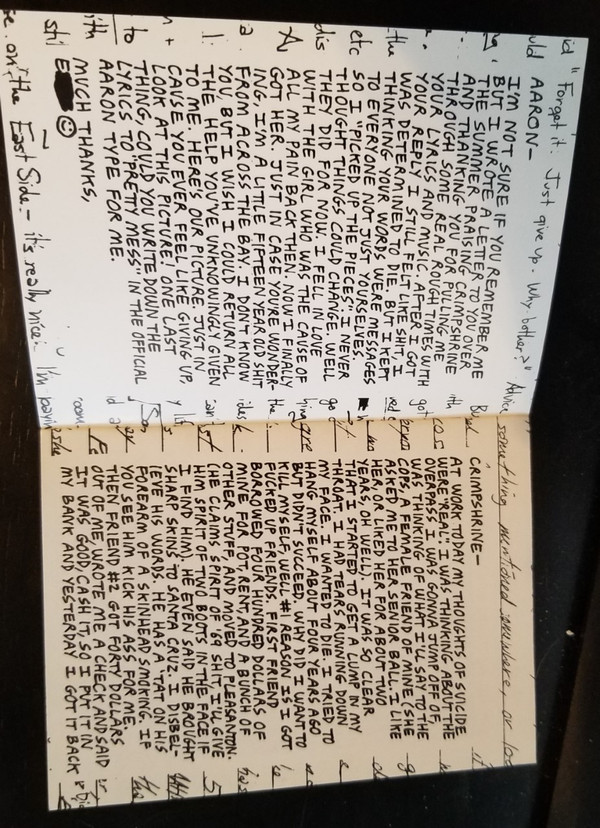 id "Forget it. Just give up. Why bother?" Advice
uld AARON-
I'M NOT SURE IF YOU REMEMBER ME
BUT I WROTE A LETTER TO YOU OVER
THE SUMMER PRAISING CRIMPSHRINE
AND THANKING YOU FOR PULLING ME
THROUGH SOME REAL ROUGH TIMES WITH
YOUR LYRICS AND MUSIC. AFTER I GOT
YOUR REPLY I STILL FELT LIKE SHIT, I
WAS DETERMINED TO DIE. BUT I KEPT
THINKING YOUR WORDS WERE MESSAGES
TO EVERYONE NOT JUST YOURSELVES.
SO I "PICKED UP THE PIECES". I NEVER
THOUGHT THINGS COULD CHANGE. WELL
THEY DID FOR NOW. I FELL IN LOVE
WITH THE GIRL WHO WAS THE CAUSE OF
ALL MY PAIN BACK THEN. NOW I FINALLY
GOT HER. JUST IN CASE YOU'RE WONDER-
ING, I'M A LITLE FIFTEEN YEAR OLD SHIT
FROM ACROSS THE BAY. I DON'T KNOW
YOU, BUT I WISH I COULD RETURN ALL
THE HELP YOU'VE UNKNOWINGLY GIVEN
TO ME. HERE'S OUR PICTURE. JUST IN
CAUSE YOU EVER FEEL LIKE GIVING UP,
LOOK AT THIS PICTURE! ONE LAST
THING, COULD YOU WRITE DOWN THE
LYRICS TO "PRETTY MESS" IN THE OFFICIAL
AARON TYPE FOR ME.
MUCH THANKS,
E
on, the East Side - it's really nice. I'm
something mentioned somewhere, or
CRIMPSHRINE-
AT WORK TODAY MY THOUGHTS OF SUICIDE
WERE "REAL". I WAS THINKING ABOUT THE
OVERPASS I WAS GONNA JUMP OFF OF,
WAS THINKING OF WHAT I'LL SAY TO THE
COPS. A FEMALE FRIEND OF MINE, (SHE
ASKED ME TO HER JUNIOR BALL. I LIKE
HER, OR LIKED HER FOR ABOUT TWO
YEARS, OH WELL). IT WAS SO CLEAR
THAT I STARTED TO GET A LUMP IN MY
THROAT. I HAD TEARS RUNNING DOWN
MY FACE. I WANTED TO DIE. I TRIED TO
HANG MYSELF ABOUT FOUR YEARS AGO
BUT DIDN'T SUCCEED. WHY DID I WANT TO
KILL MYSELF, WELL #1 REASON IS I GOT
FUCKED UP FRIENDS. FIRST FRIEND
BORROWED FOUR HUNDRED DOLLARS OF
MINE FOR POT, RENT, AND A BUNCH OF
OTHER STUFF, AND MOVED TO PLEASANTON.
(HE CLAIMS SPIRIT OF '69 SHIT, I'LL GIVE
HIM SPIRIT OF TWO BOOTS IN THE FACE IF
I FIND HIM). HE EVEN SAID HE BROUGHT
SHARP SKINS TO SANTA CRUZ. I DISBEL-
IEVE HIS WORDS. HE HAS A TAT ON HIS
FOREARM OF A SKINHEAD SMOKING. IF
YOU SEE HIM KICK HIS ASS FOR ME.
THEN FRIEND #2 GOT FORTY DOLLARS
OUT OF ME, WROTE ME A CHECK AND SAID
IT WAS GOOD, CASH IT, SO I PUT IT IN
MY BANK AND YESTERDAY I GOT IT BACK